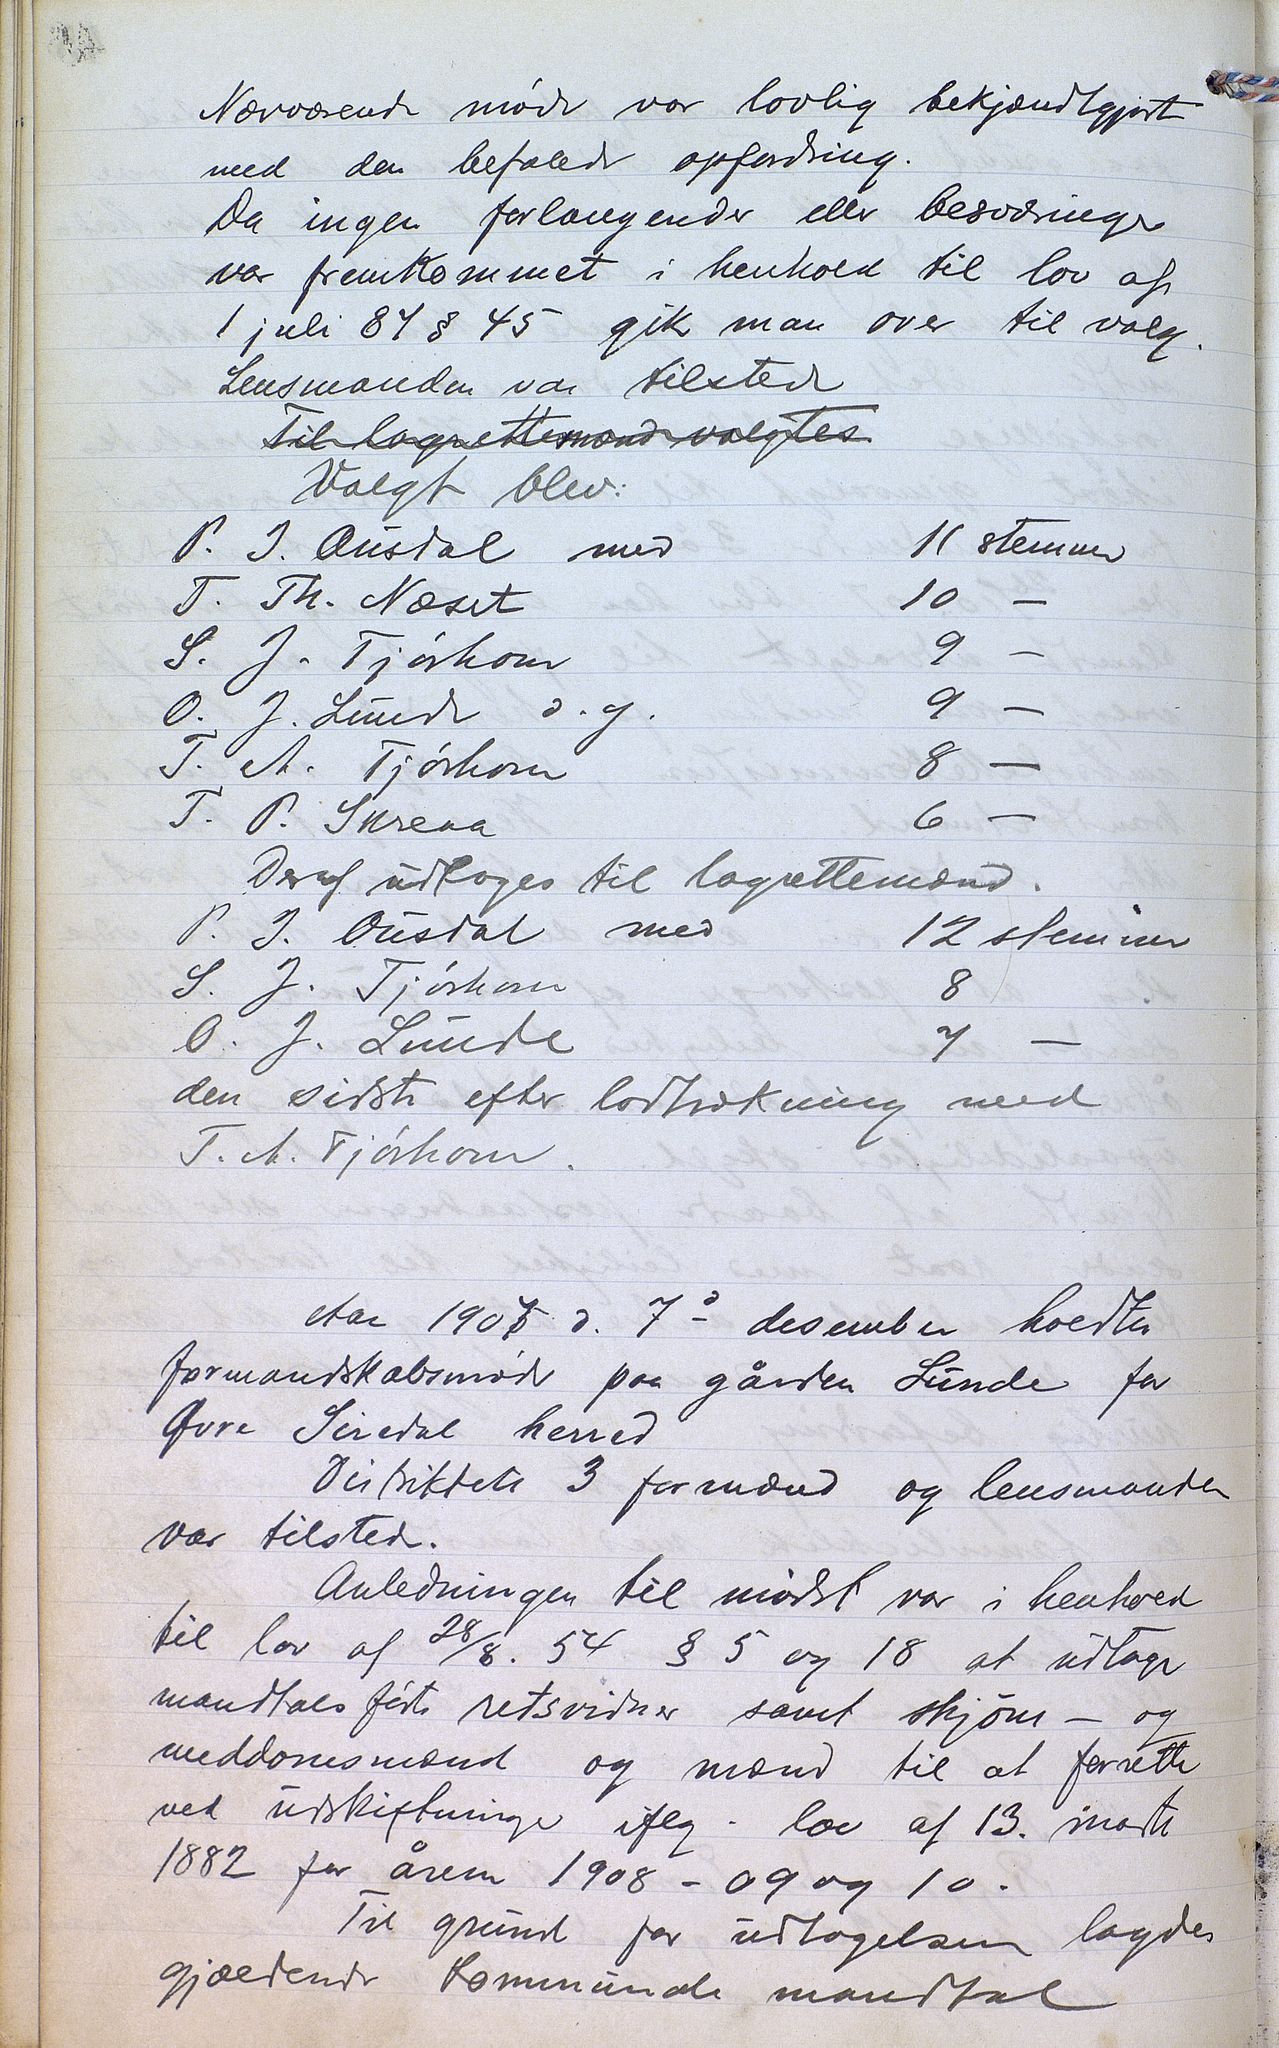 Nærværende møde var lovlig bekjændtgjort
med den befalede opfordring.
Da ingen forlangender eller besværinger
var fremkommet i henhold til lov af
1 juli 87 § 45 gik man over til valg.
Lensmanden var tilstede
Til lagrettemænd valgtes
Valgt blev:
P. I. Ousdal med 11 stemmer
T. Th. Næset 10 —
S. J. Tjórhom 9 —
O. J. Lunde d. y. 9 —
T. A. Tjórhom 8 —
T. P. Skreaa 6 —
Deraf udtoges til lagrettemænd.
P. I. Ousdal med 12 stemmer
S. J. Tjórhom 8
O. J. Lunde 7 —
den sidste efter lodtrækning med
T. A. Tjórhom.
Aar 1907 d. 7de desember holdtes
formandskabsmøde paa gården Lunde for
Øvre Siredal herred
Distriktets 3 formænd og lensmanden
var tilstede.
Anledningen til mødet var i henhold
til lov af 28/8. 54 § 5 og 18 at udtage
mandtalsførte retsvidner samt skjøns- og
meddomsmænd og mænd til at forrette
ved udskiftninger iflg. lov af 13. marts
1882 for årene 1908 - 09 og 10.
Til grund for udtagelsen lagdes
gjældende kommunale mandtal